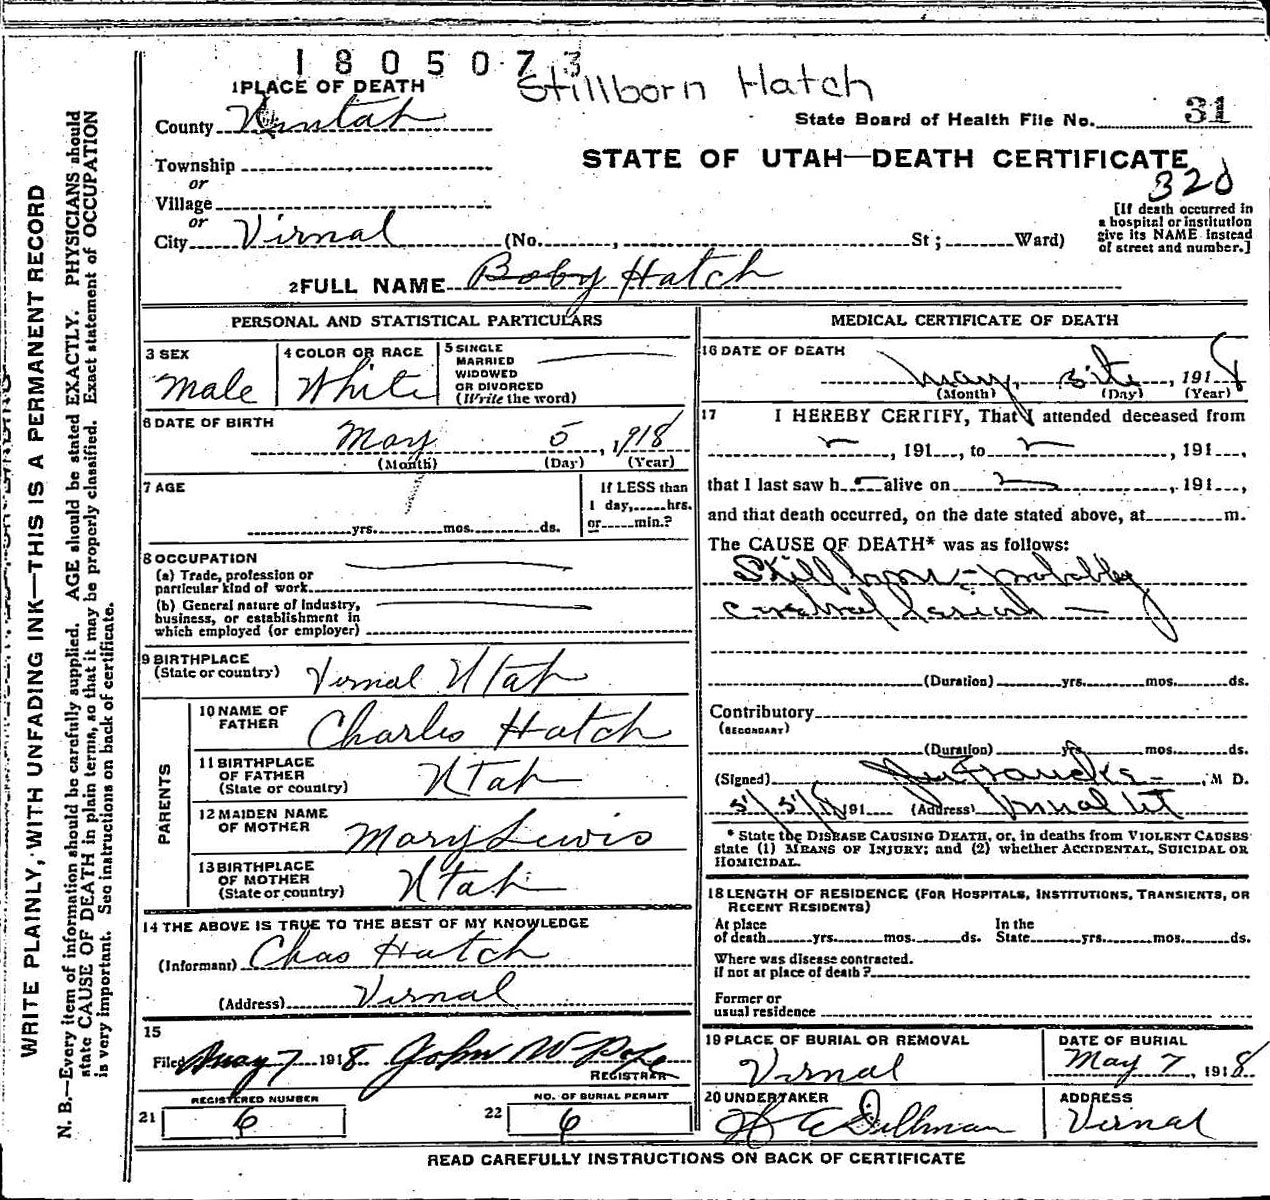 1805073
Stillborn Hatch
1 PLACE OF DEATH
County Uintah
State Board of Health File No. 31
Township
or
Village
or
City Virnal (No. , St; Ward)
STATE OF UTAH—DEATH CERTIFICATE
328
[If death occurred in
a hospital or institution
give its NAME instead
of street and number.]
2 FULL NAME Baby Hatch
PERSONAL AND STATISTICAL PARTICULARS
3 SEX
Male
4 COLOR OR RACE
White
5 SINGLE
MARRIED
WIDOWED
OR DIVORCED
(Write the word)
6 DATE OF BIRTH
May 5, 1918
(Month) (Day) (Year)
7 AGE
yrs. mos. ds.
If LESS than
1 day, hrs.
or min.?
8 OCCUPATION
(a) Trade, profession or
particular kind of work
(b) General nature of industry,
business, or establishment in
which employed (or employer)
9 BIRTHPLACE
(State or country) Virnal Utah
PARENTS
10 NAME OF
FATHER Charles Hatch
11 BIRTHPLACE
OF FATHER
(State or country) Utah
12 MAIDEN NAME
OF MOTHER Mary Lewis
13 BIRTHPLACE
OF MOTHER
(State or country) Utah
14 THE ABOVE IS TRUE TO THE BEST OF MY KNOWLEDGE
(Informant) Chas Hatch
(Address) Virnal
15
Filed May 7 1918 John W Pope
REGISTRAR
21 REGISTERED NUMBER
6
22 NO. OF BURIAL PERMIT
6
MEDICAL CERTIFICATE OF DEATH
16 DATE OF DEATH
May 5th, 1918
(Month) (Day) (Year)
17 I HEREBY CERTIFY, That I attended deceased from
, 191 , to , 191 ,
that I last saw h alive on , 191 ,
and that death occurred, on the date stated above, at m.
The CAUSE OF DEATH* was as follows:
Stillborn - probably
cerebral lesion
(Duration) yrs. mos. ds.
Contributory
(SECONDARY)
(Duration) yrs mos. ds.
(Signed) Francke , M D.
5/5/18 191 (Address) Vernal Ut
* State the DISEASE CAUSING DEATH, or, in deaths from VIOLENT CAUSES
state (1) MEANS OF INJURY; and (2) whether ACCIDENTAL, SUICIDAL OR
HOMICIDAL.
18 LENGTH OF RESIDENCE (FOR HOSPITALS, INSTITUTIONS, TRANSIENTS, OR
RECENT RESIDENTS)
At place In the
of death yrs. mos. ds. State yrs. mos. ds.
Where was disease contracted.
if not at place of death?
Former or
usual residence
19 PLACE OF BURIAL OR REMOVAL
Virnal
DATE OF BURIAL
May 7, 1918
20 UNDERTAKER
Dillman
ADDRESS
Virnal
READ CAREFULLY INSTRUCTIONS ON BACK OF CERTIFICATE
WRITE PLAINLY, WITH UNFADING INK—THIS IS A PERMANENT RECORD
N. B.—Every item of information should be carefully supplied. AGE should be stated EXACTLY. PHYSICIANS should
state CAUSE OF DEATH in plain terms, so that it may be properly classified. Exact statement of OCCUPATION
is very important. See instructions on back of certificate.